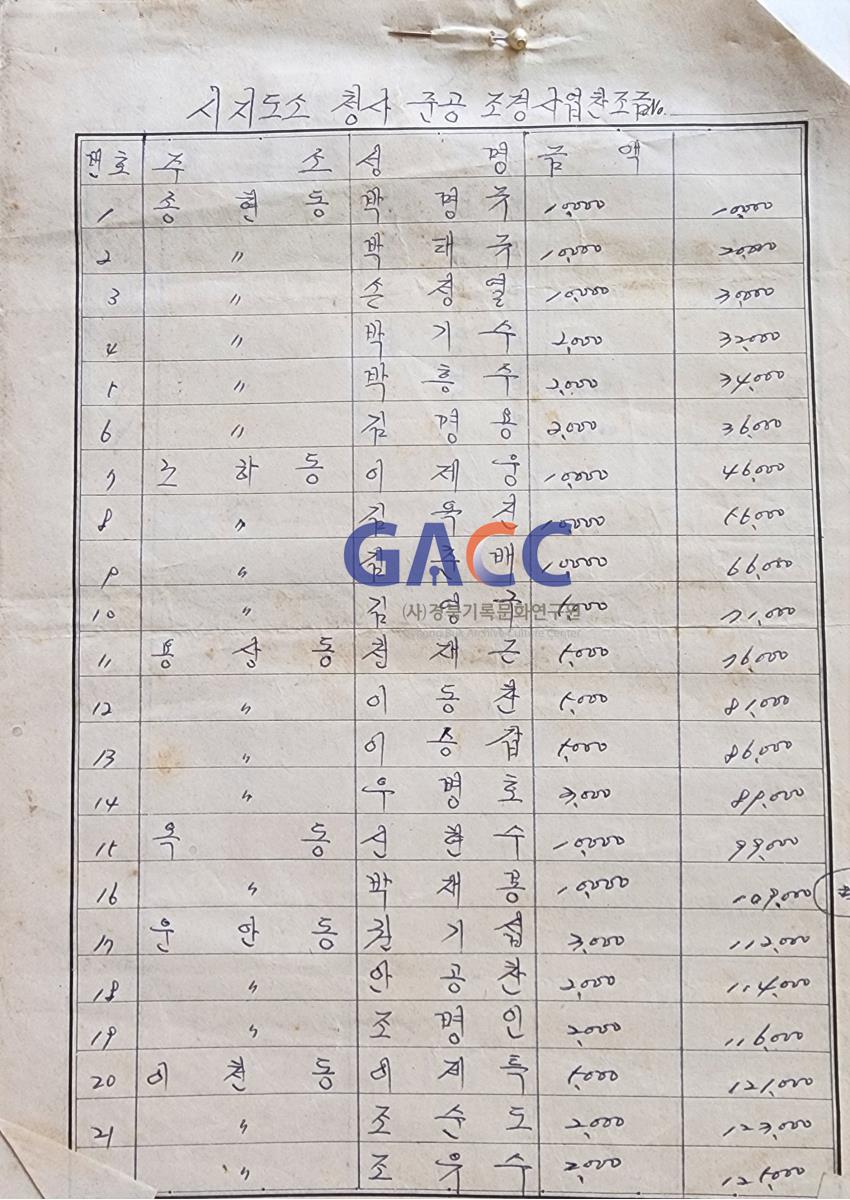 시지도소 청사 준공 조경사업찬조금 No.
번호 주소 성명 금액
1 송현동 박명규 10,000 10,000
2 〃 박태규 10,000 20,000
3 〃 손성열 10,000 30,000
4 〃 박기수 2,000 32,000
5 〃 박흥수 2,000 34,000
6 〃 김명용 2,000 36,000
7 노하동 이제웅 10,000 46,000
8 〃 김 10,000 56,000
9 〃 배 10,000 66,000
10 〃 김영 5,000 71,000
11 용상동 권재근 5,000 76,000
12 〃 이동찬 5,000 81,000
13 〃 이승갑 5,000 86,000
14 〃 우병호 3,000 89,000
15 옥동 신현수 10,000 99,000
16 〃 박재용 10,000 109,000
17 운안동 권기섭 3,000 112,000
18 〃 안공찬 2,000 114,000
19 〃 조명인 2,000 116,000
20 이천동 이제특 5,000 121,000
21 〃 조순도 2,000 123,000
〃 조유수 2,000 125,000
GACC
(사)경북기록문화연구원